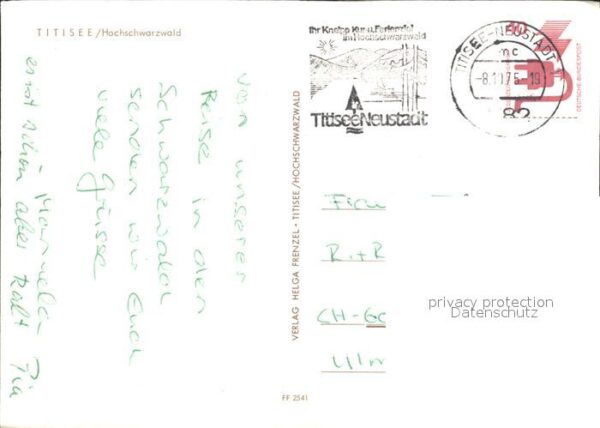 TITISEE/Hochschwarzwald
Von unserer
Reise in den
Schwarzwald
senden wir Euch
viele Grüsse
es ist schön aber kalt Pia
VERLAG HELGA FRENZEL · TITISEE/HOCHSCHWARZWALD
FF 2541
Ihr Kneipp Kur u. Ferienziel
im Hochschwarzwald
Titisee Neustadt
TITISEE-NEUSTADT
mc
-8.10.75-19
82
DEUTSCHE BUNDESPOST
Frau
R.+R
CH-
privacy protection
Datenschutz